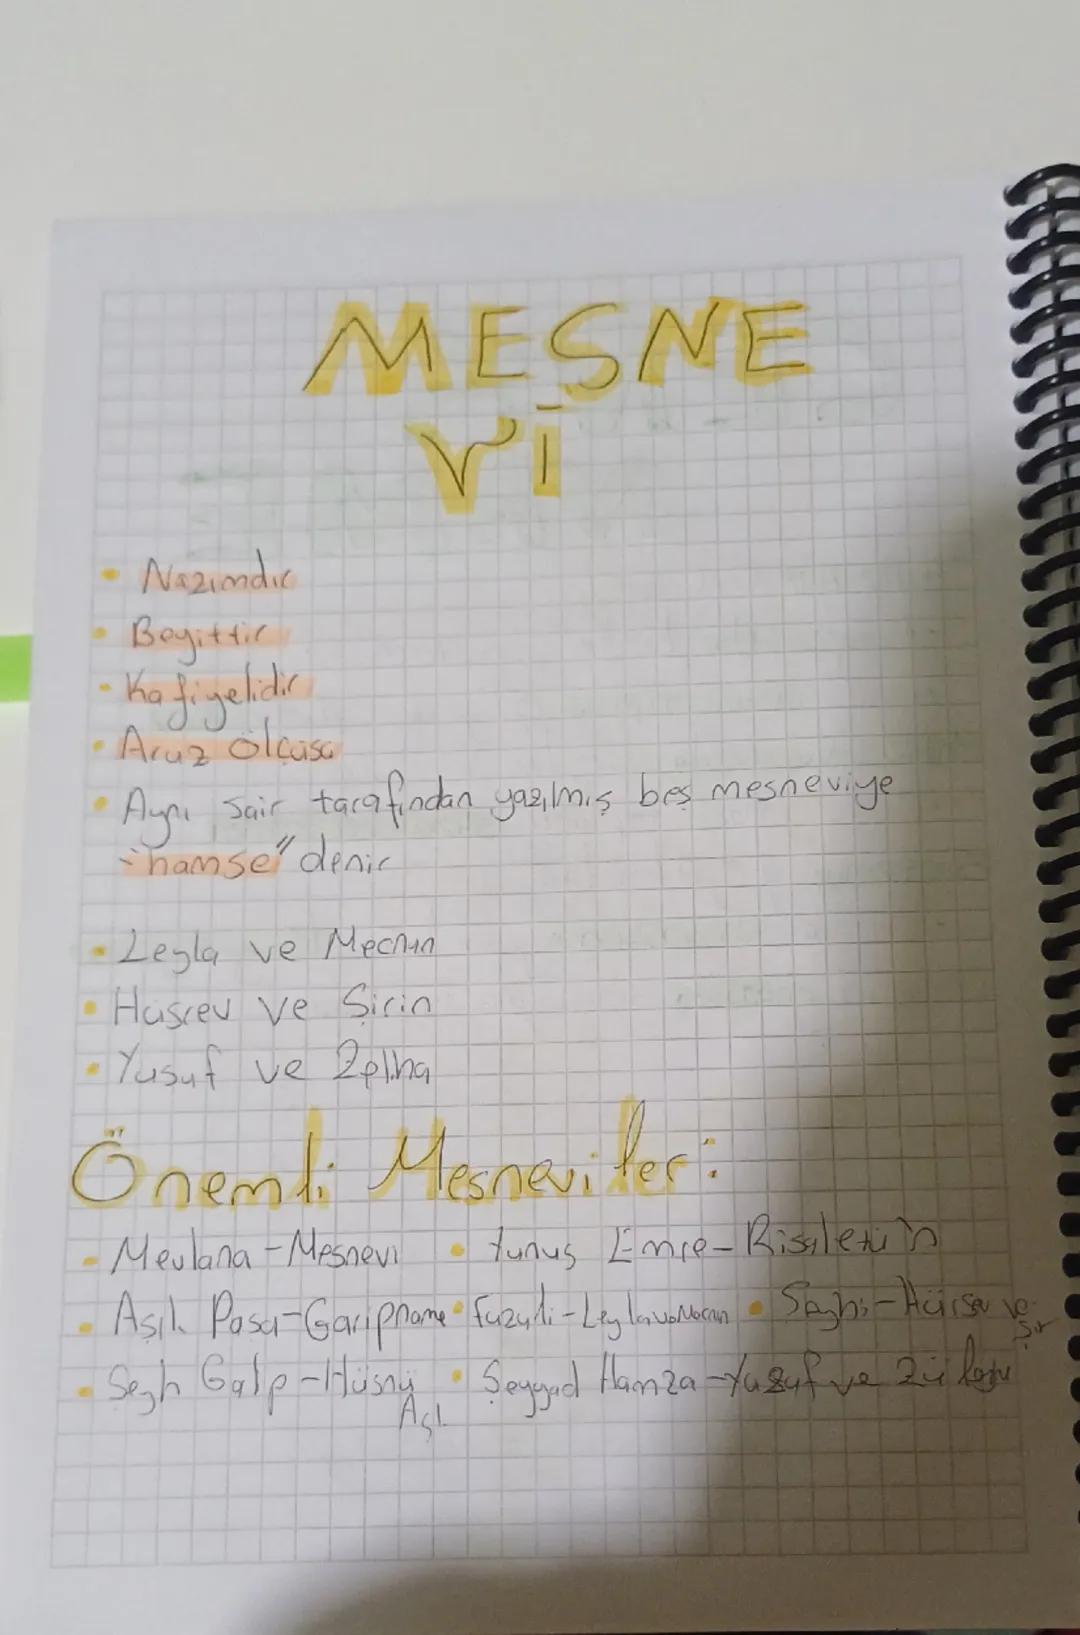 MESNE
Vİ
• Nazımdır
• Beyittir
• Kafiyelidir
• Aruz ölçüsü
• Aynı şair tarafından yazılmış beş mesneviye
"hamse" denir
• Leyla ve Mecnun
• Hüsrev ve Şirin
• Yusuf ve Zeliha
Önemli Mesneviler:
• Mevlana - Mesnevi • Yunus Emre - Risaletü'n
• Aşık Paşa - Garipname • Fuzuli - Leyla ve Mecnun • Şeyhi - Hürsev ve Şir
• Şeyh Galip - Hüsnü • Şeyyad Hamza - Yusuf ve
Aşk